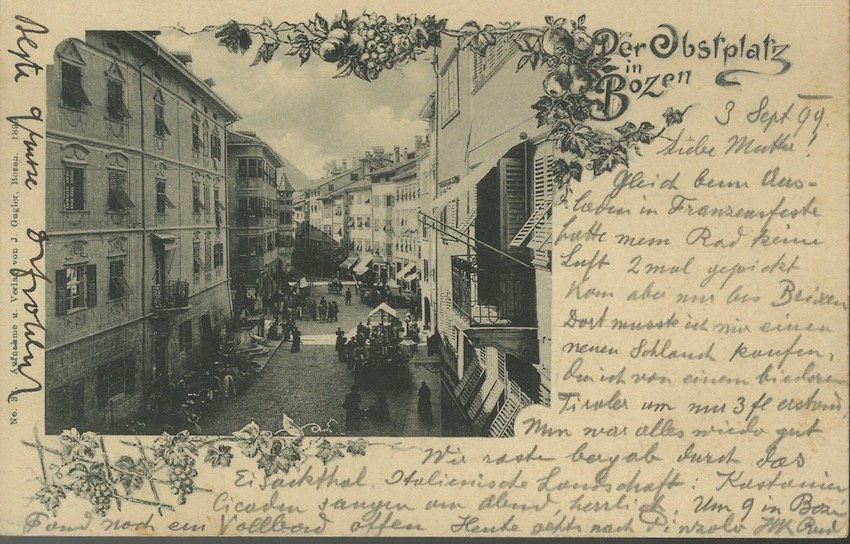 Der Obstplatz
in
Bozen
3 Sept 99.
Liebe Mutter!
Gleich beim Aus-
laden in Franzensfeste
hatte mein Rad keine
Luft 2 mal gepickt
kam aber nur bis Brixen
Dort musste ich mir einen
neuen Schlauch kaufen,
den ich von einem biederen
Tiroler um nur 3 fl erstand.
Nun war alles wieder gut
Wir raste bergab durch das
Eisackthal. Italienische Landschaft: Kastanien
Cicaden sangen am Abend, herrlich. Um 9 in Bozen
Fand noch ein Vollbad offen Heute gehts nach Pinzolo
Beste Grüsse
No. 3 Aufnahme u. Verlag von J. Gugler, Bozen. 189